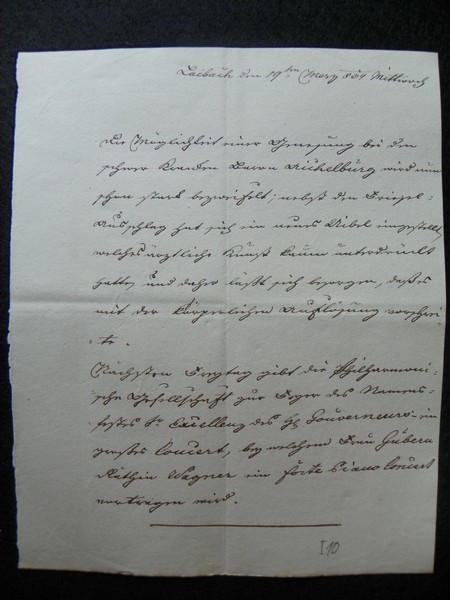 Laibach den 19ten März 851 Mittwoch
Die Möglichkeit einer Genesung bei dem
schwer Kranken Baron Aichelburg wird nun
schon stark bezweifelt; nebst den Friesel-
Ausschlag hat sich ein neues Uibel eingestellt,
welches ärztliche Kunst kaum unterdrückt
hatte, und daher läßt sich besorgen, daß es
mit der körperlichen Auflösung vorschrei-
te.
Nächsten Freytag gibt die Philharmoni-
sche Gesellschaft zur Feyer des Namens-
festes Sr Excellenz des H Gouverneurs ein
großes Concert, bey welchem Frau Gubern
Räthin Wagner ein forte piano Concert
vortragen wird.
I10